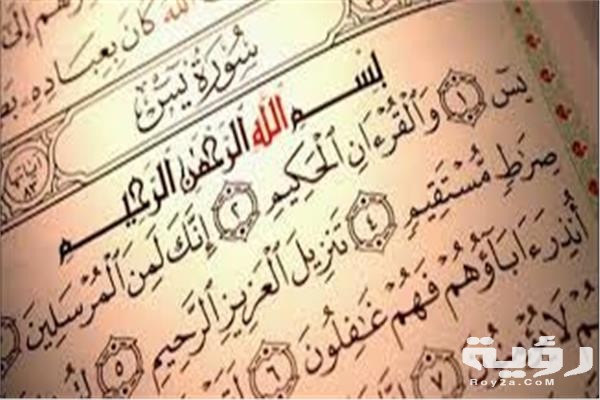 ٱللَّهَ كَانَ بِعِبَادِهِۦ
سُورَةُ يسٓ
آياتها ٨٣
بِسْمِ ٱللَّهِ ٱلرَّحْمَٰنِ ٱلرَّحِيمِ
يسٓ ١ وَٱلْقُرْءَانِ ٱلْحَكِيمِ ٢ إِنَّكَ لَمِنَ ٱلْمُرْسَلِينَ
صِرَٰطٍ مُّسْتَقِيمٍ ٤ تَنزِيلَ ٱلْعَزِيزِ ٱلرَّحِيمِ ٥
أُنذِرَ ءَابَآؤُهُمْ فَهُمْ غَٰفِلُونَ ٦
٧
رؤية
Roy2a.CoM